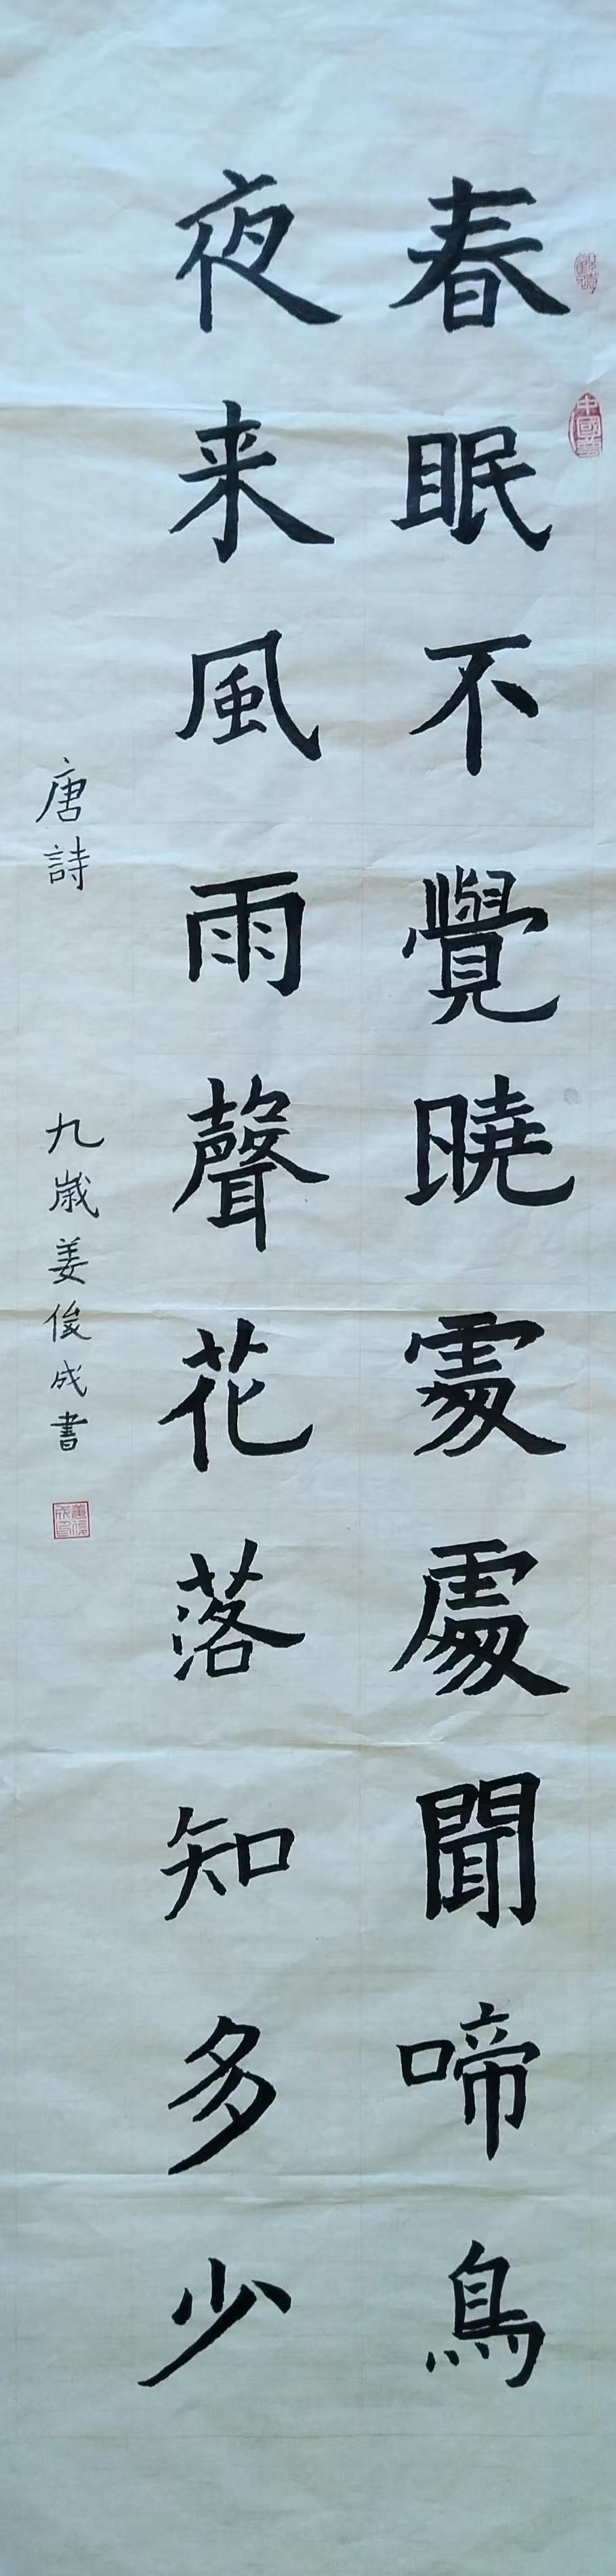 春眠不覺曉處處聞啼鳥
夜来風雨聲花落知多少
唐詩
九歲姜俊成書
中國夢